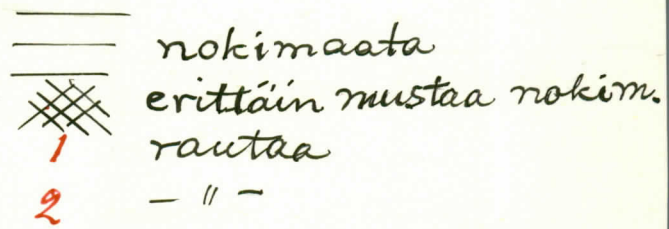 nokimaata
erittäin mustaa nokim.
1 rautaa
2 — " —